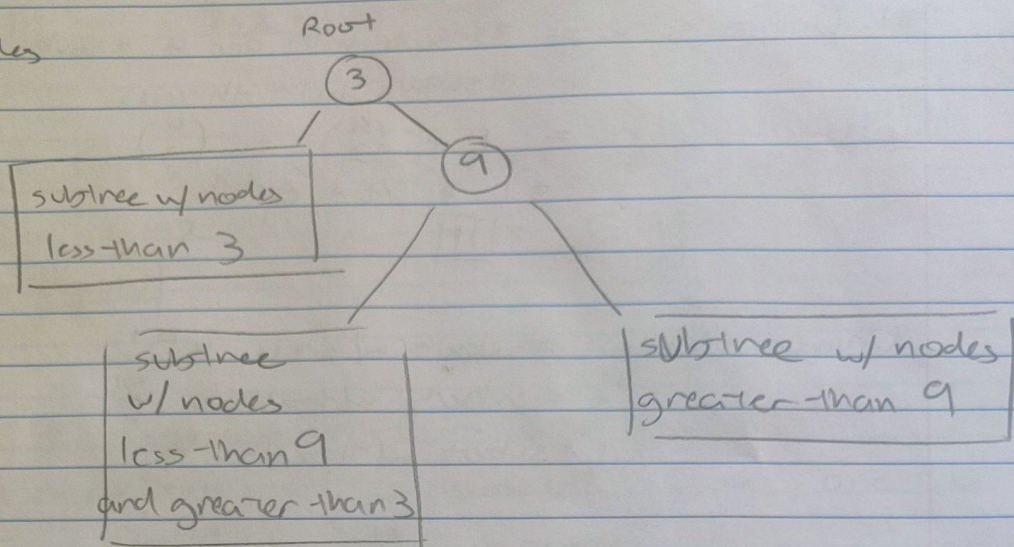 Root
3
9
subtree w/ nodes
less than 3
subtree
w/ nodes
less than 9
and greater than 3
subtree w/ nodes
greater than 9